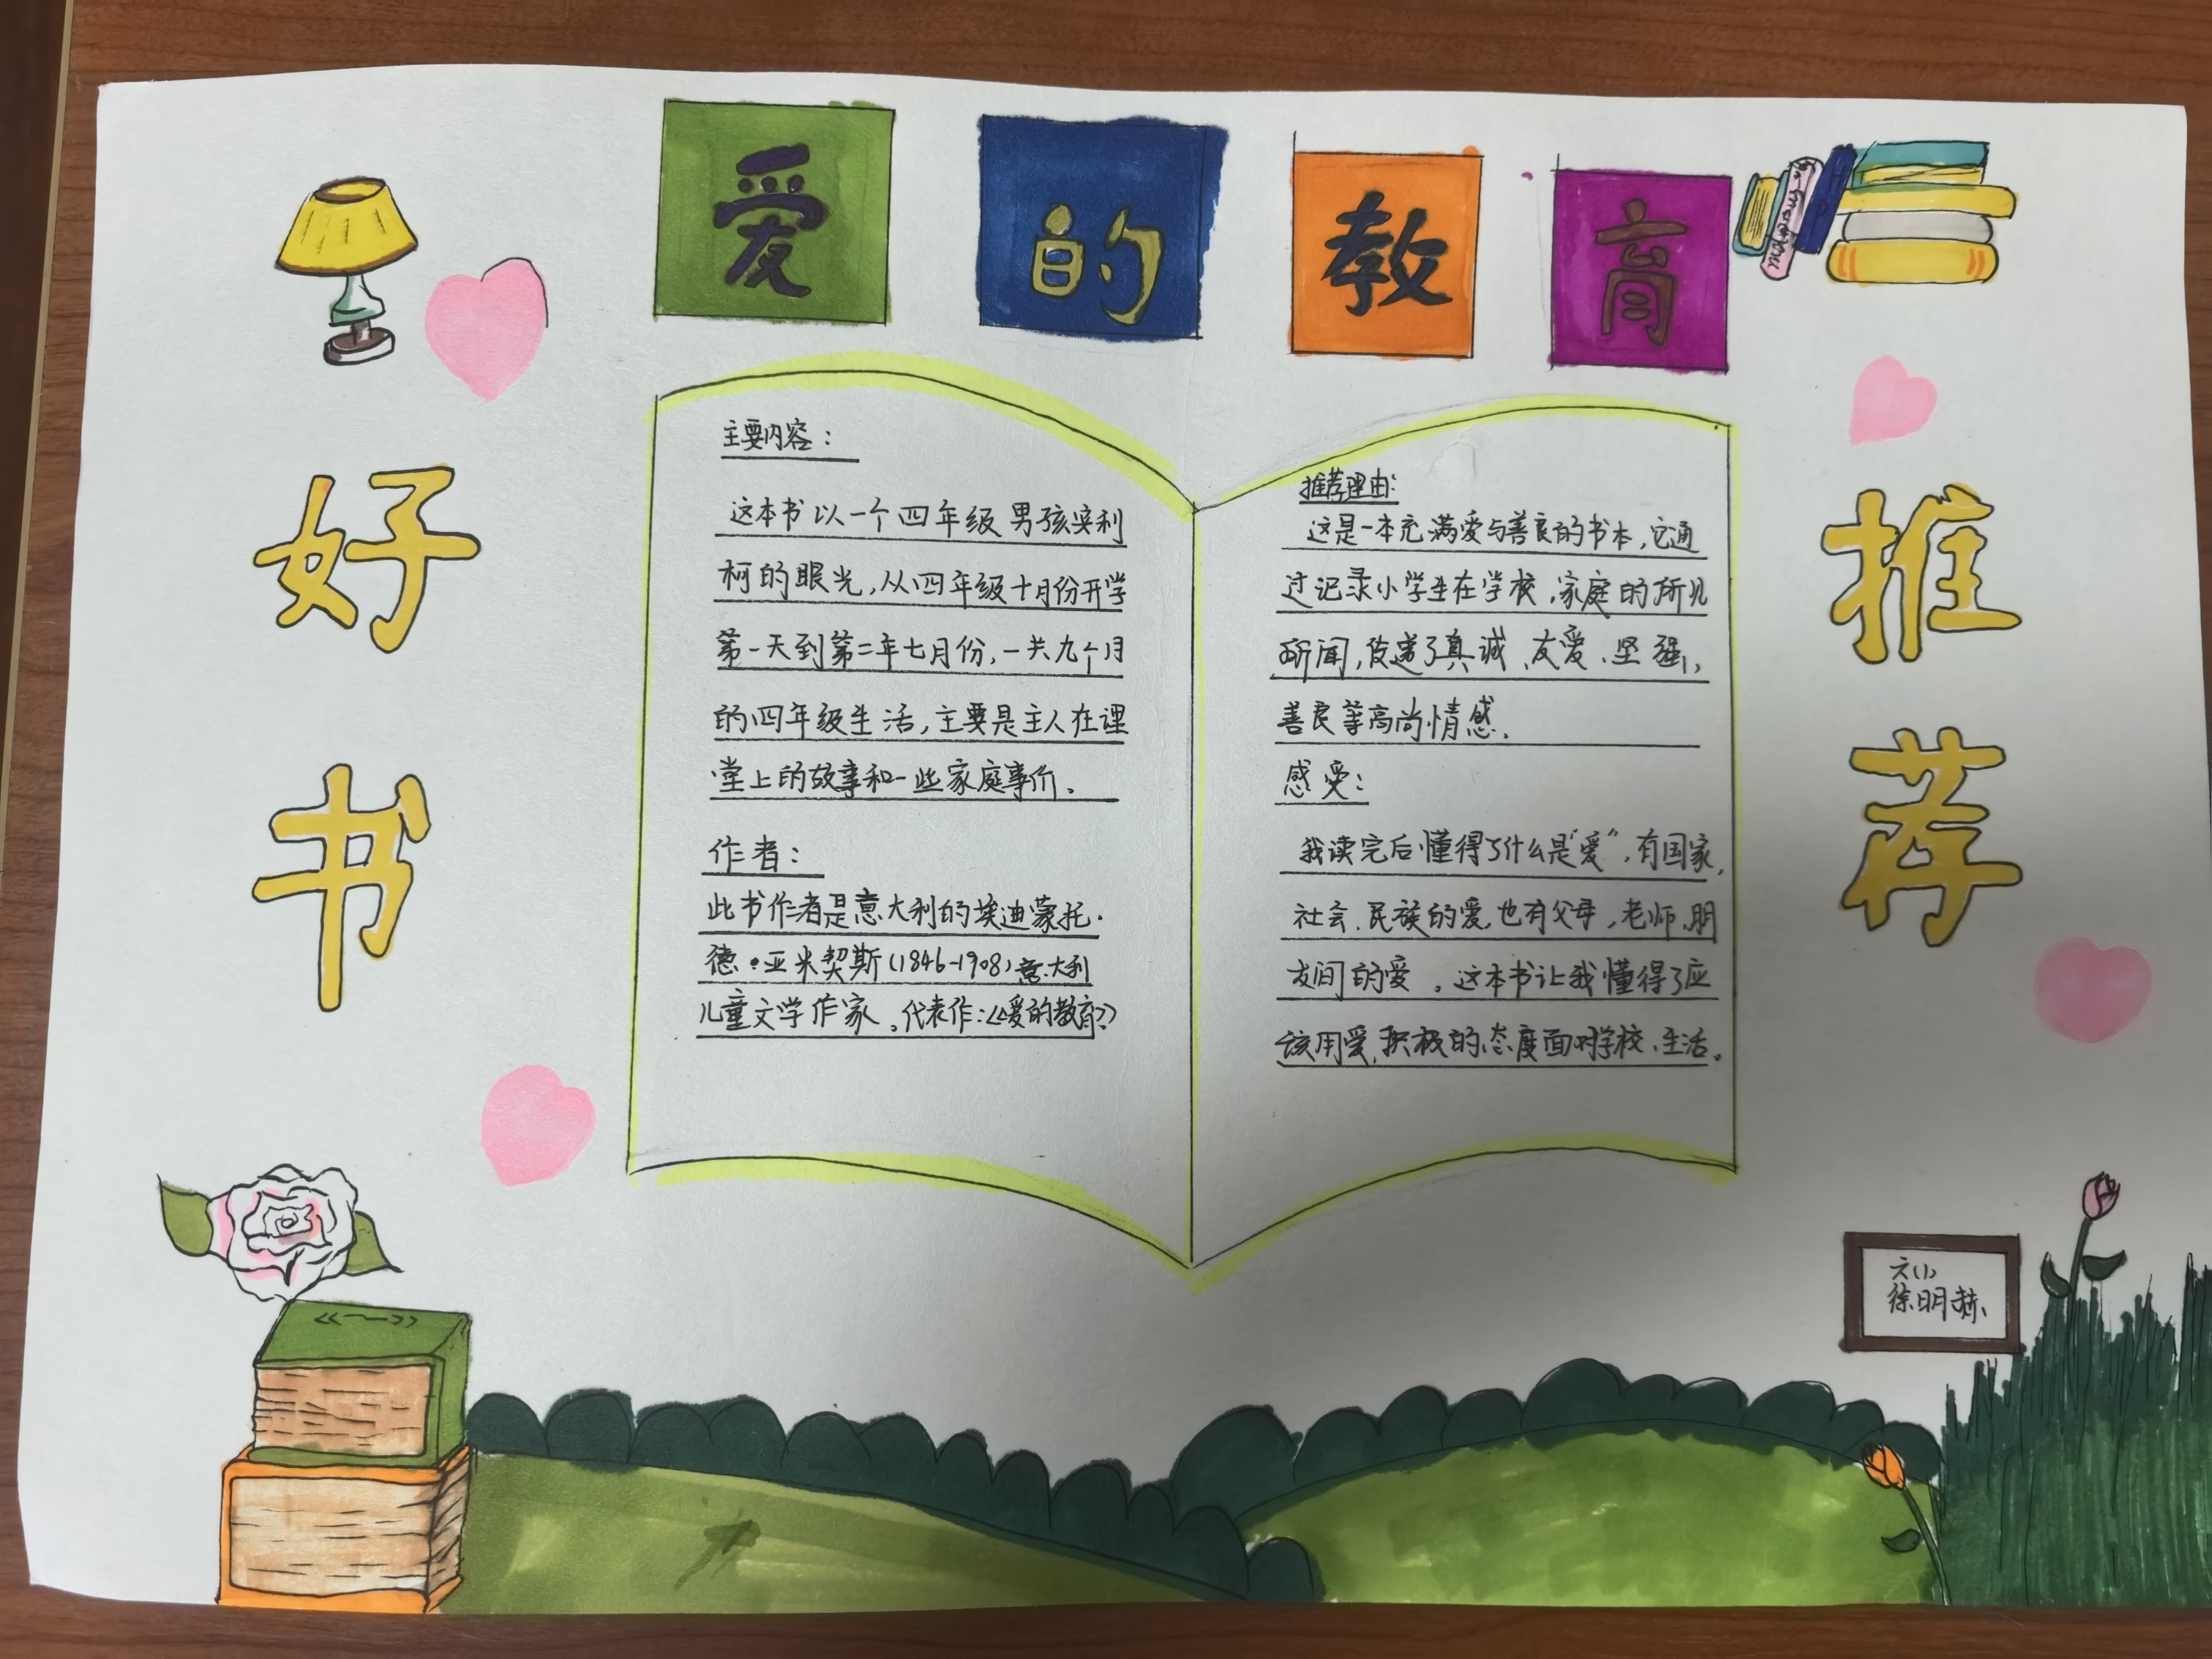 爱的教育
好书
推荐
主要内容：
这本书以一个四年级男孩安利
柯的眼光，从四年级十月份开学
第一天到第二年七月份，一共九个月
的四年级生活，主要是主人在课
堂上的故事和一些家庭事价。
作者：
此书作者是意大利的埃迪蒙托·
德·亚米契斯(1846-1908)意大利
儿童文学作家。代表作：《爱的教育》
推荐理由：
这是一本充满爱与善良的书本，它通
过记录小学生在学校，家庭的所见
所闻，传递了真诚、友爱、坚强，
善良等高尚情感．
感受：
我读完后懂得了什么是“爱”，有国家，
社会、民族的爱，也有父母，老师、朋
友间的爱。这本书让我懂得了应
该用爱，积极的态度面对学校、生活。
六(1)
徐明赫